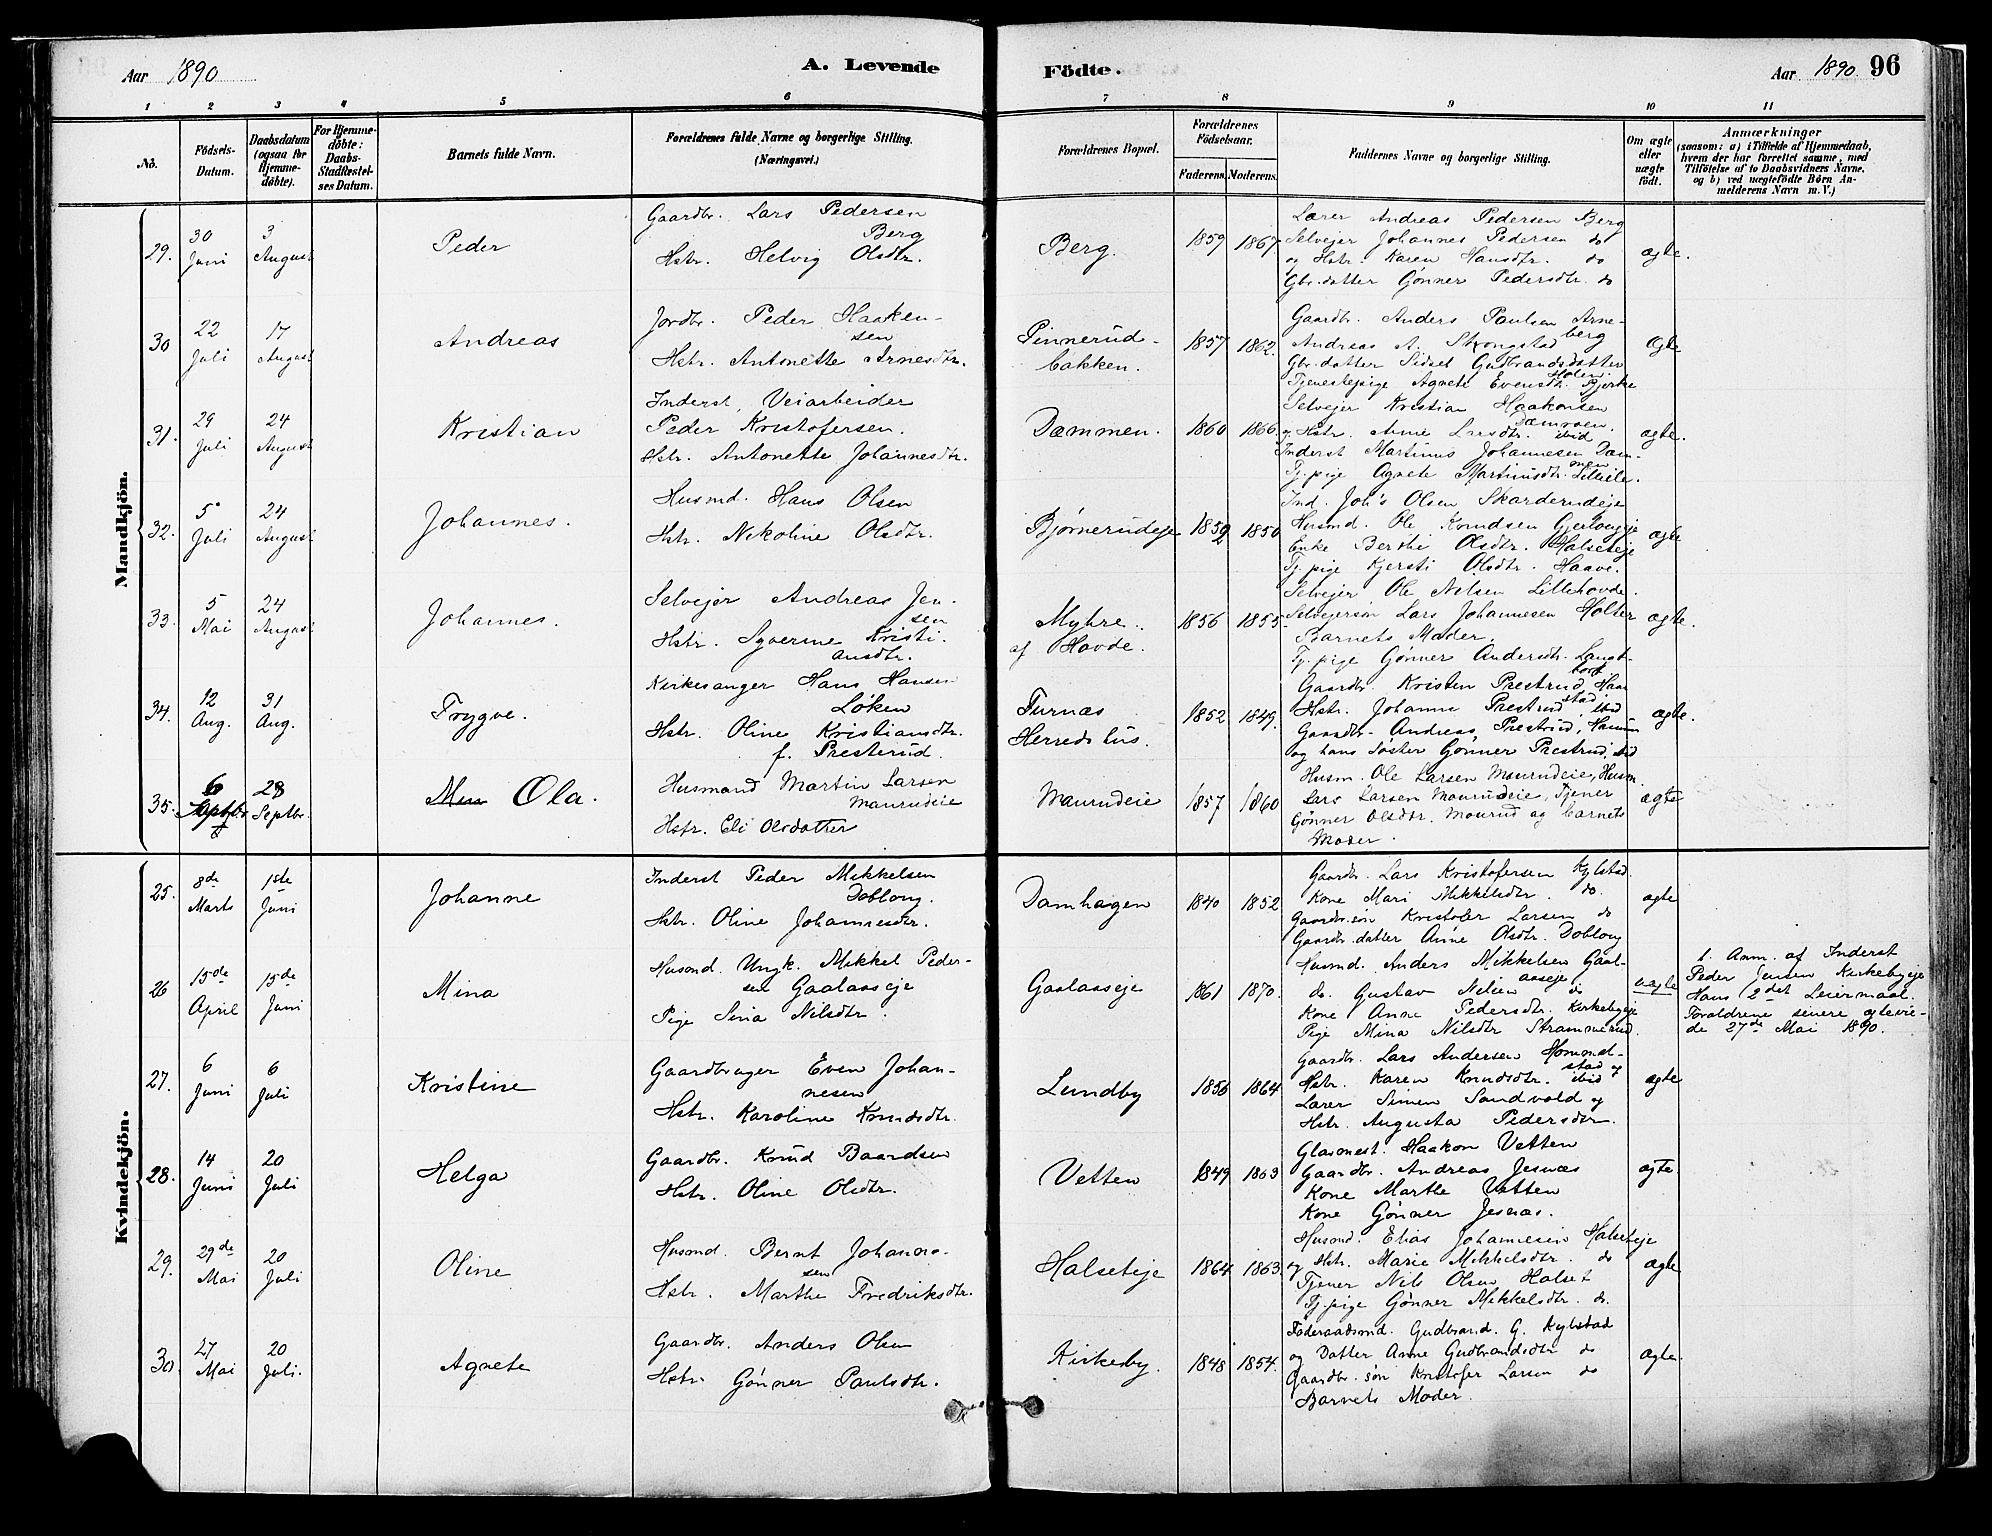 Aar 1890
A. Levende Födte.
Aar 1890 96
1 2 3 4 5 6 7 8 9 10 11
No.
Födsels-Datum.
Daabsdatum (ogsaa for Hjemmedöbte).
For Hjemmedöbte: Daabs-Stadfæstelses Datum.
Barnets fulde Navn.
Forældrenes fulde Navne og borgerlige Stilling. (Næringsvei.)
Forældrenes Bopæl.
Forældrenes Födselsaar.
Faderens. Moderens.
Faddernes Navne og borgerlige Stilling.
Om ægte eller uægte födt.
Anmærkninger
(saasom: a) i Tilfælde af Hjemmedaab, hvem der har forrettet samme, med Tilföielse af to Daabsvidners Navne, og b) ved uægtefödte Börn Anmelderens Navn m. V.)
Mandkjön.
29. 30 Juni
3 August
Peder
Gaardbr. Lars Pedersen
Berg
Hstr. Helvig Olsdtr.
Berg.
1859 1867
Lærer Andreas Pedersen Berg
Selvejer Johannes Pedersen do
og Hstr. Karen Hansdtr. do
Gbr.datter Gønner Pedersdtr. do
ægte.
30 22 Juli
17 August
Andreas
Jordbr. Peder Haaken-
sen
Hstr. Antonette Arnesdtr.
Pinnerud-
bakken.
1857 1862.
Gaardbr. Anders Paulsen Arne-
berg
Andreas A. Skongstad
Gbr.datter Sidsel Gudbrandsdatter
Holen
Tjenestepige Agnete Evensdtr. Bjerke
ægte
31. 29 Juli
24 August
Kristian
Inderst, Veiarbeider
Peder Kristofersen.
Hstr. Antonette Johannesdtr.
Dammen.
1860 1866.
Selvejer Kristian Haakonsen
Damroen.
og Hstr. Anne Larsdtr. ibid
Inderst Martinus Johannesen Dam-
men
Tj.pige Agnete Martinusdtr. Lilleile.
ægte.
32. 5 Juli
24 August
Johannes.
Husmd. Hans Olsen
Hstr. Nikoline Olsdtr.
Bjørnerudeje
1852 1850
Ind. Joh's Olsen Skarderudeje
Husmd. Ole Knudsen
Enke Berthe Olsdtr. Halseteje
Tj.pige Kjersti Olsdtr. Haave.
ægte
33. 5 Mai
24 August
Johannes.
Selvejer Andreas Jen-
sen
Hstr. Syverine Kristi-
ansdtr.
Myhre
af Hovde.
1856 1855
Selvejer Ole Nilsen Lillehovde.
Selvejersøn Lars Johannesen Holter
Barnets Moder.
Tj.pige Gønner Andersdtr. Langt-
ægte.
34. 12 Aug.
31 Aug.
Trygve.
Kirkesanger Hans Hansen
Løken
Hstr. Oline Kristiansdtr.
f. Presterud.
Furnæs
Herredshus.
1852 1849.
Gaardbr. Kristen Prestrud,
Hstr. Johanne Prestrud ibid
Gaardbr. Andreas Prestrud,
og hans søster Gønner Prestrud, ibid
ægte.
35. 6 Septbr
28 Septbr.
Ola.
Husmand Martin Larsen
Maurudeie
Hstr. Eli Olsdatter
Maurudeie
1857 1860
Husm. Ole Larsen Maurudeie, Husm.
Lars Larsen Maurudeie, Tjener
Gønner Olsdtr. Maurud og barnets
Moder.
ægte
Kvindekjön.
25. 8de Marts
1ste Juni
Johanne
Inderst Peder Mikkelsen
Doblong.
Hstr. Oline Johannesdtr.
Damhagen
1840 1852
Gaardbr. Lars Kristofersen Kylstad
Kone Mari Mikkelsdtr. do.
Gaardbr.søn Kristofer Larsen do
Gaardbr.datter Anne Olsdtr. Doblong
ægte
26 15de April
15de Juni
Mina
Husmd. Ungk. Mikkel Peder-
sen Gaalaaseje
Pige Sina Nilsdtr.
Gaalaaseje
1861 1870.
Husmd. Anders Mikkelsen Gaal-
aaseje
do. Gustav Nilsen do
Kone Anne Pedersdtr. Kirkebyeje
Pige Mina Nilsdtr Strammerud.
uægte
1. Anm. af Inderst
Peder Jensen Kirkebyeje
Hans 2det Leiermaal.
Forældrene senere ægtevie-
de 27de Mai 1890.
27. 6 Juni
6 Juli
Kristine
Gaardbruger Even Johan-
nesen
Hstr. Karoline Knudsdtr.
Lundby
1856 1864
Gaardbr. Lars Andersen Homnel-
stad og
Hstr. Karen Knudsdtr. ibid
Lærer Simen Sandvold og
Hstr. Augusta Pedersdtr.
ægte
28. 14 Juni
20 Juli
Helga
Gaardbr. Knud Baardsen
Hstr. Oline Olsdtr.
Vetten
1849 1863
Glasmest. Haakon Vetten
Gaardbr. Andreas Jesnæs
Kone Marthe Vetten
Kone Gønner Jesnæs.
ægte.
29. 29de Mai
20 Juli
Oline
Husmd. Bernt Johanne-
sen
Hstr. Marthe Fredriksdtr.
Halseteje
1864 1863.
Husmd. Elias Johannesen Halseteje
og Hstr. Marie Mikkelsdtr. do
Tjener Nils Olsen Halset
Tj.pige Gønner Mikkelsdtr. do.
ægte
30. 27 Mai
20 Juli.
Agnete
Gaardbr. Anders Olsen
Hstr. Gønner Paulsdtr.
Kirkeby.
1848 1854.
Føderaadsmd. Gudbrand G. Kylstad
og Datter Anne Gudbrandsdtr do
Gaardbr.søn Kristofer Larsen do
Barnets Moder.
ægte.